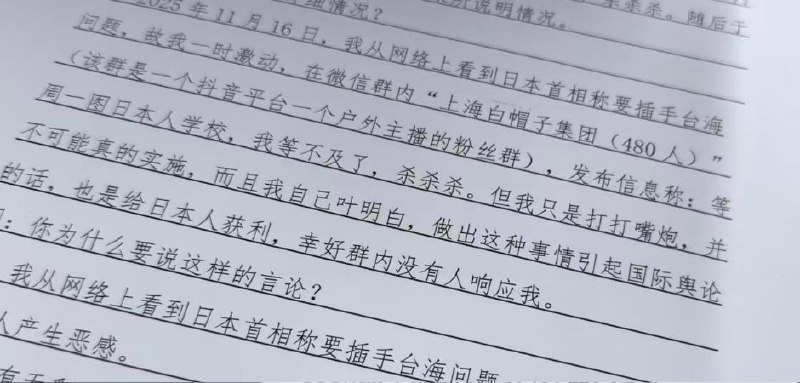 所说明情况。
杀杀杀。随后于
细情况?
2025年11月16日,我从网络上看到日本首相称要插手台海
问题,故我一时激动,在微信群内“上海白帽子集团(480人)”
(该群是一个抖音平台一个户外主播的粉丝群),发布信息称:等
周一图日本人学校,我等不及了,杀杀杀。但我只是打打嘴炮,并
不可能真的实施,而且我自己叶明白,做出这种事情引起国际舆论
的话,也是给日本人获利,幸好群内没有人响应我。
:你为什么要说这样的言论?
我从网络上看到日本首相称要插手台海问题
人产生恶感。